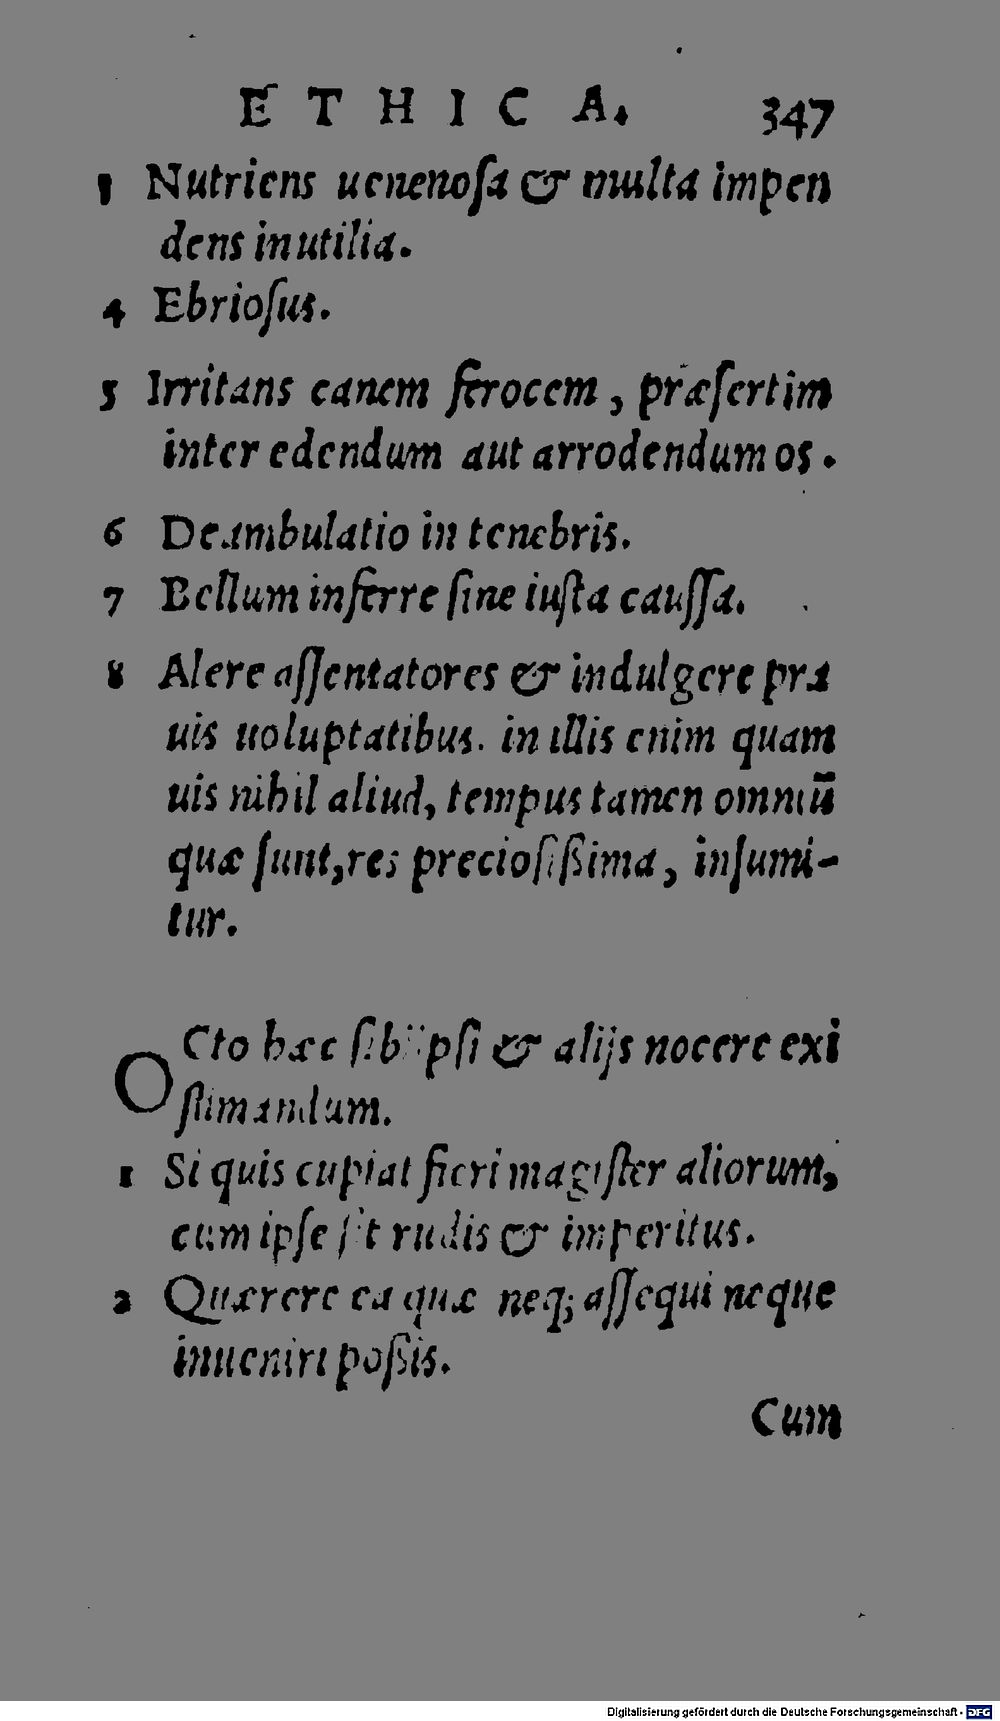 ETHICA. 347
3 Nutriens uenenosa & multa impen
dens inutilia.
4 Ebriosus.
5 Irritans canem ferocem, præsertim
inter edendum aut arrodendum os.
6 Deambulatio in tenebris.
7 Bellum inferre sine iusta caussa.
8 Alere assentatores & indulgere pra
uis uoluptatibus. in illis enim quam
uis nihil aliud, tempus tamen omniū
quæ sunt, res preciosißima, insumi-
tur.
OCto hæc sibi ipsi & alijs nocere exi
stimandum.
1 Si quis cupiat fieri magister aliorum,
cum ipse sit rudis & imperitus.
2 Quærere ea quæ neq; assequi neque
inueniri poßis.
Cum
Digitalisierung gefördert durch die Deutsche Forschungsgemeinschaft - DFG